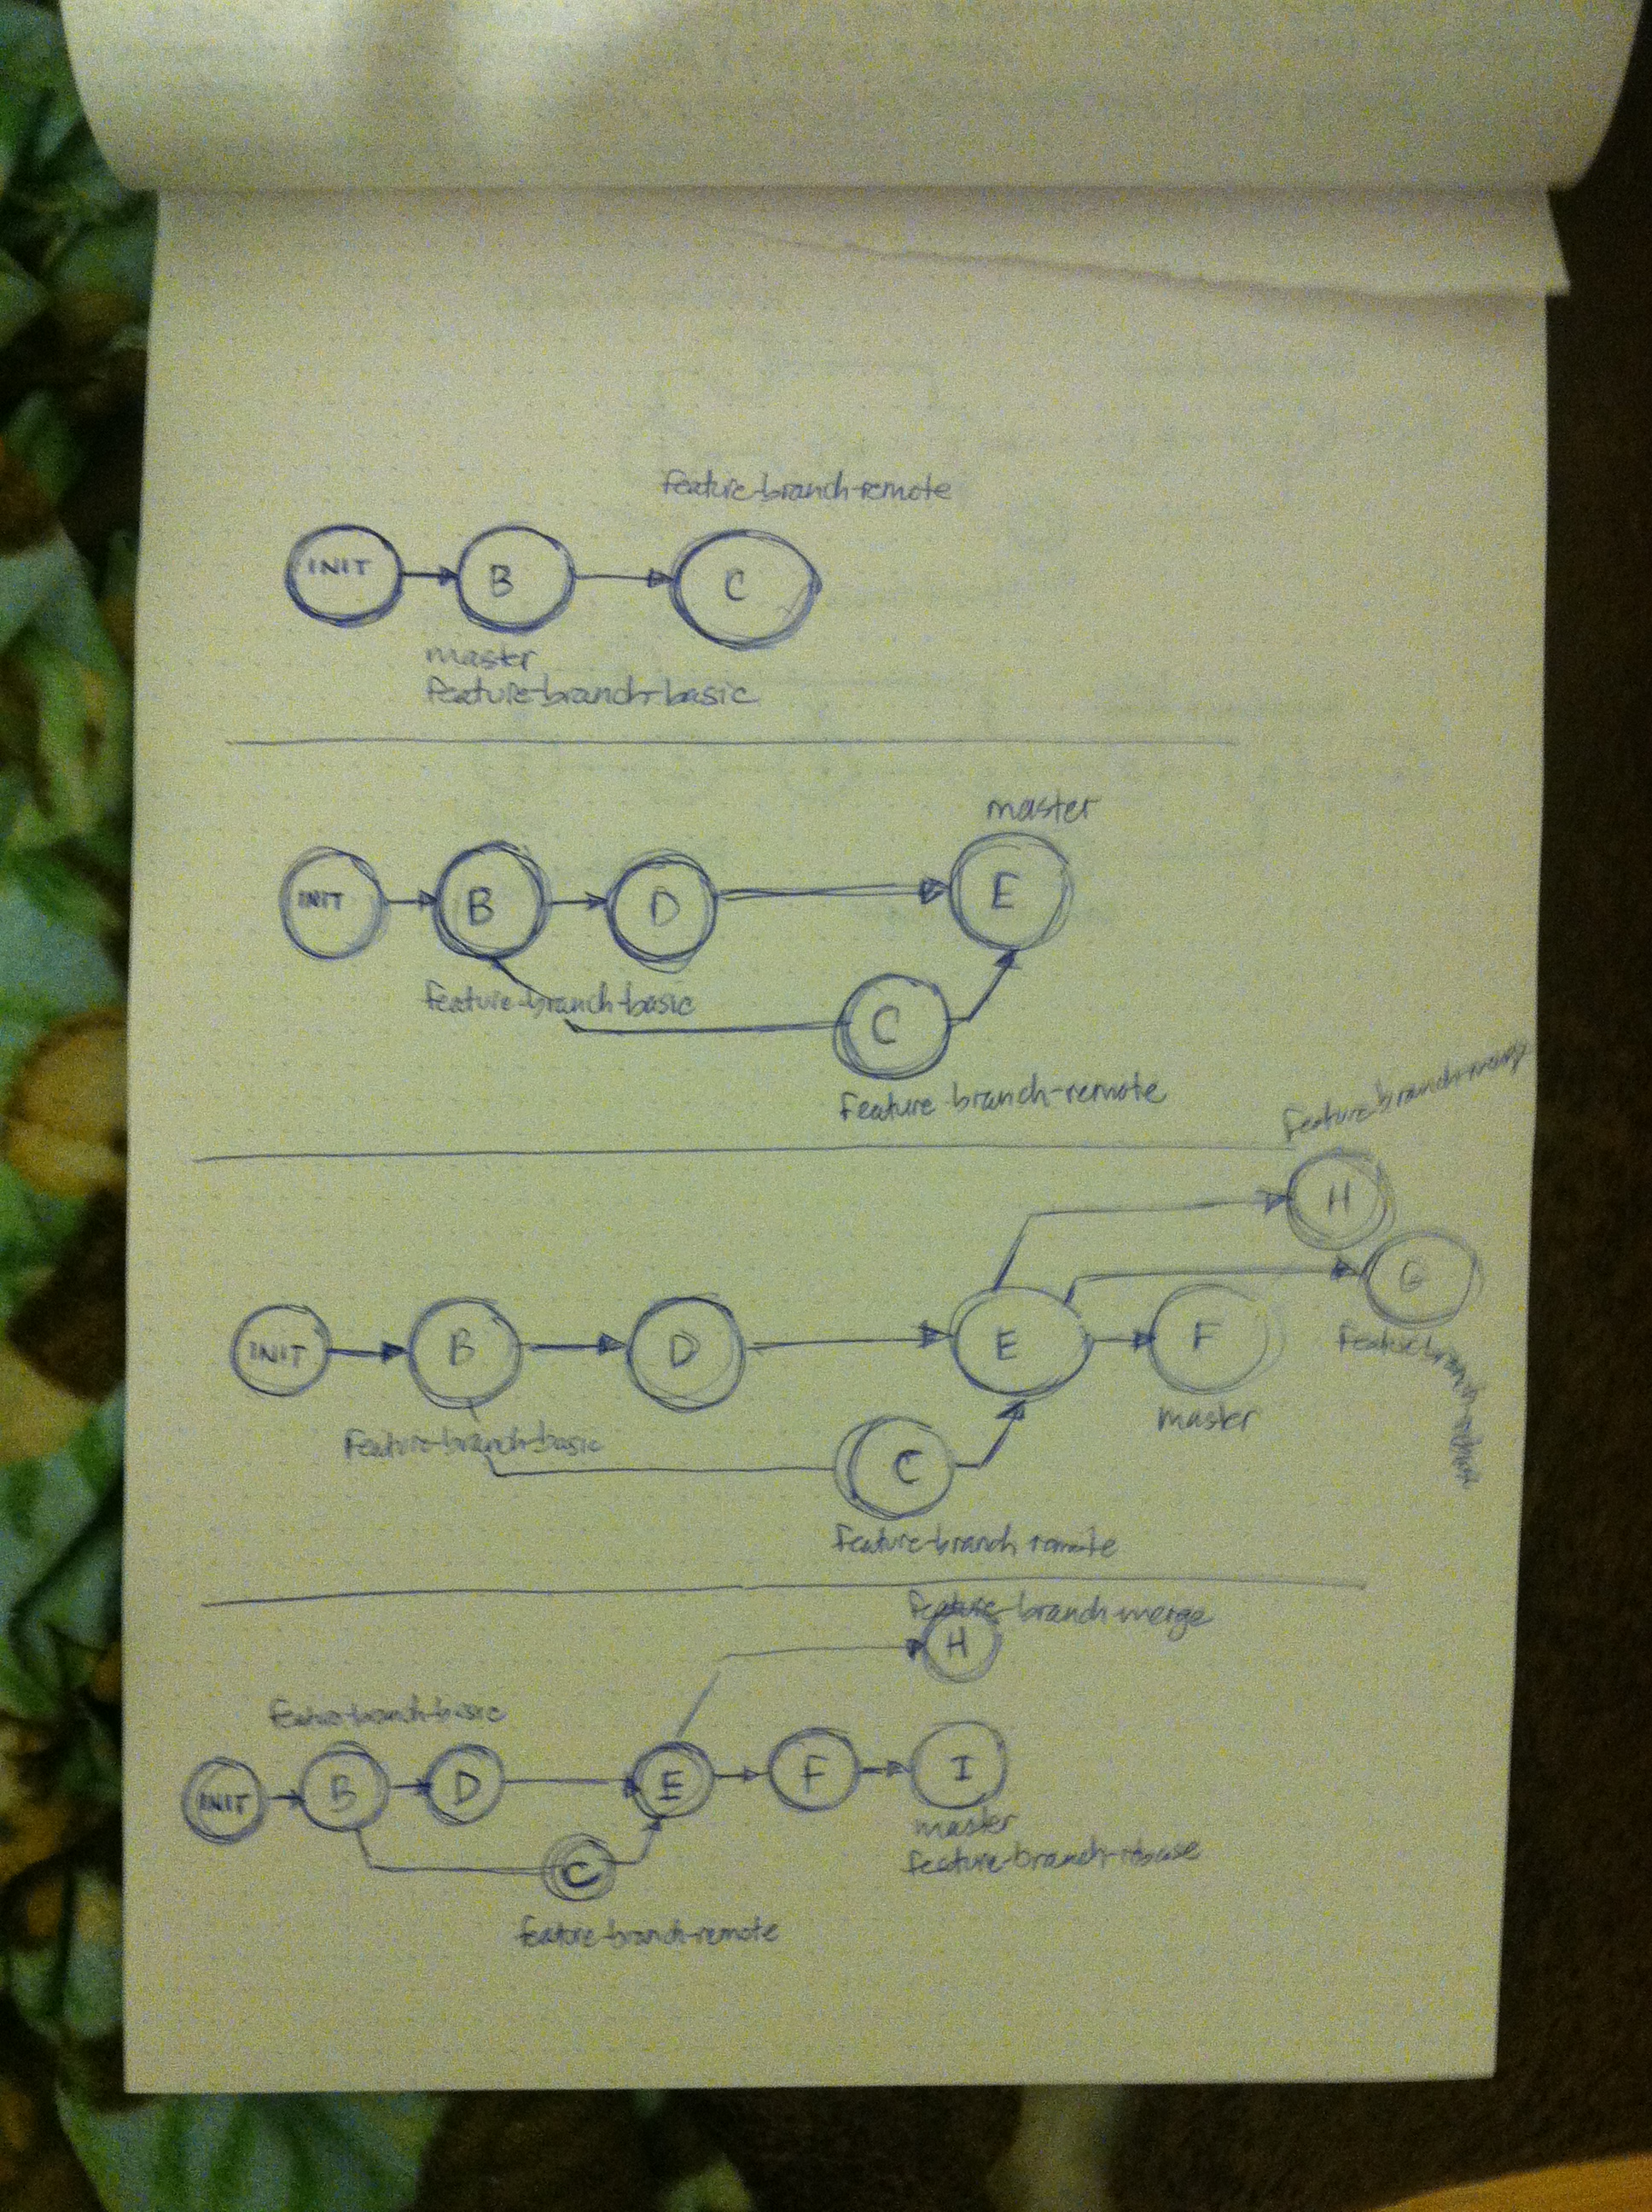 feature-branch-remote
INIT B C
master
feature-branch-basic
master
INIT B D E
feature-branch-basic
C
feature branch-remote
feature-branch-merge
H
G
INIT B D E F
feature-branch-rebase
master
feature-branch-basic
C
feature-branch remote
feature-branch-merge
H
feature-branch-basic
INIT B D E F I
master
feature-branch-rebase
C
feature-branch-remote